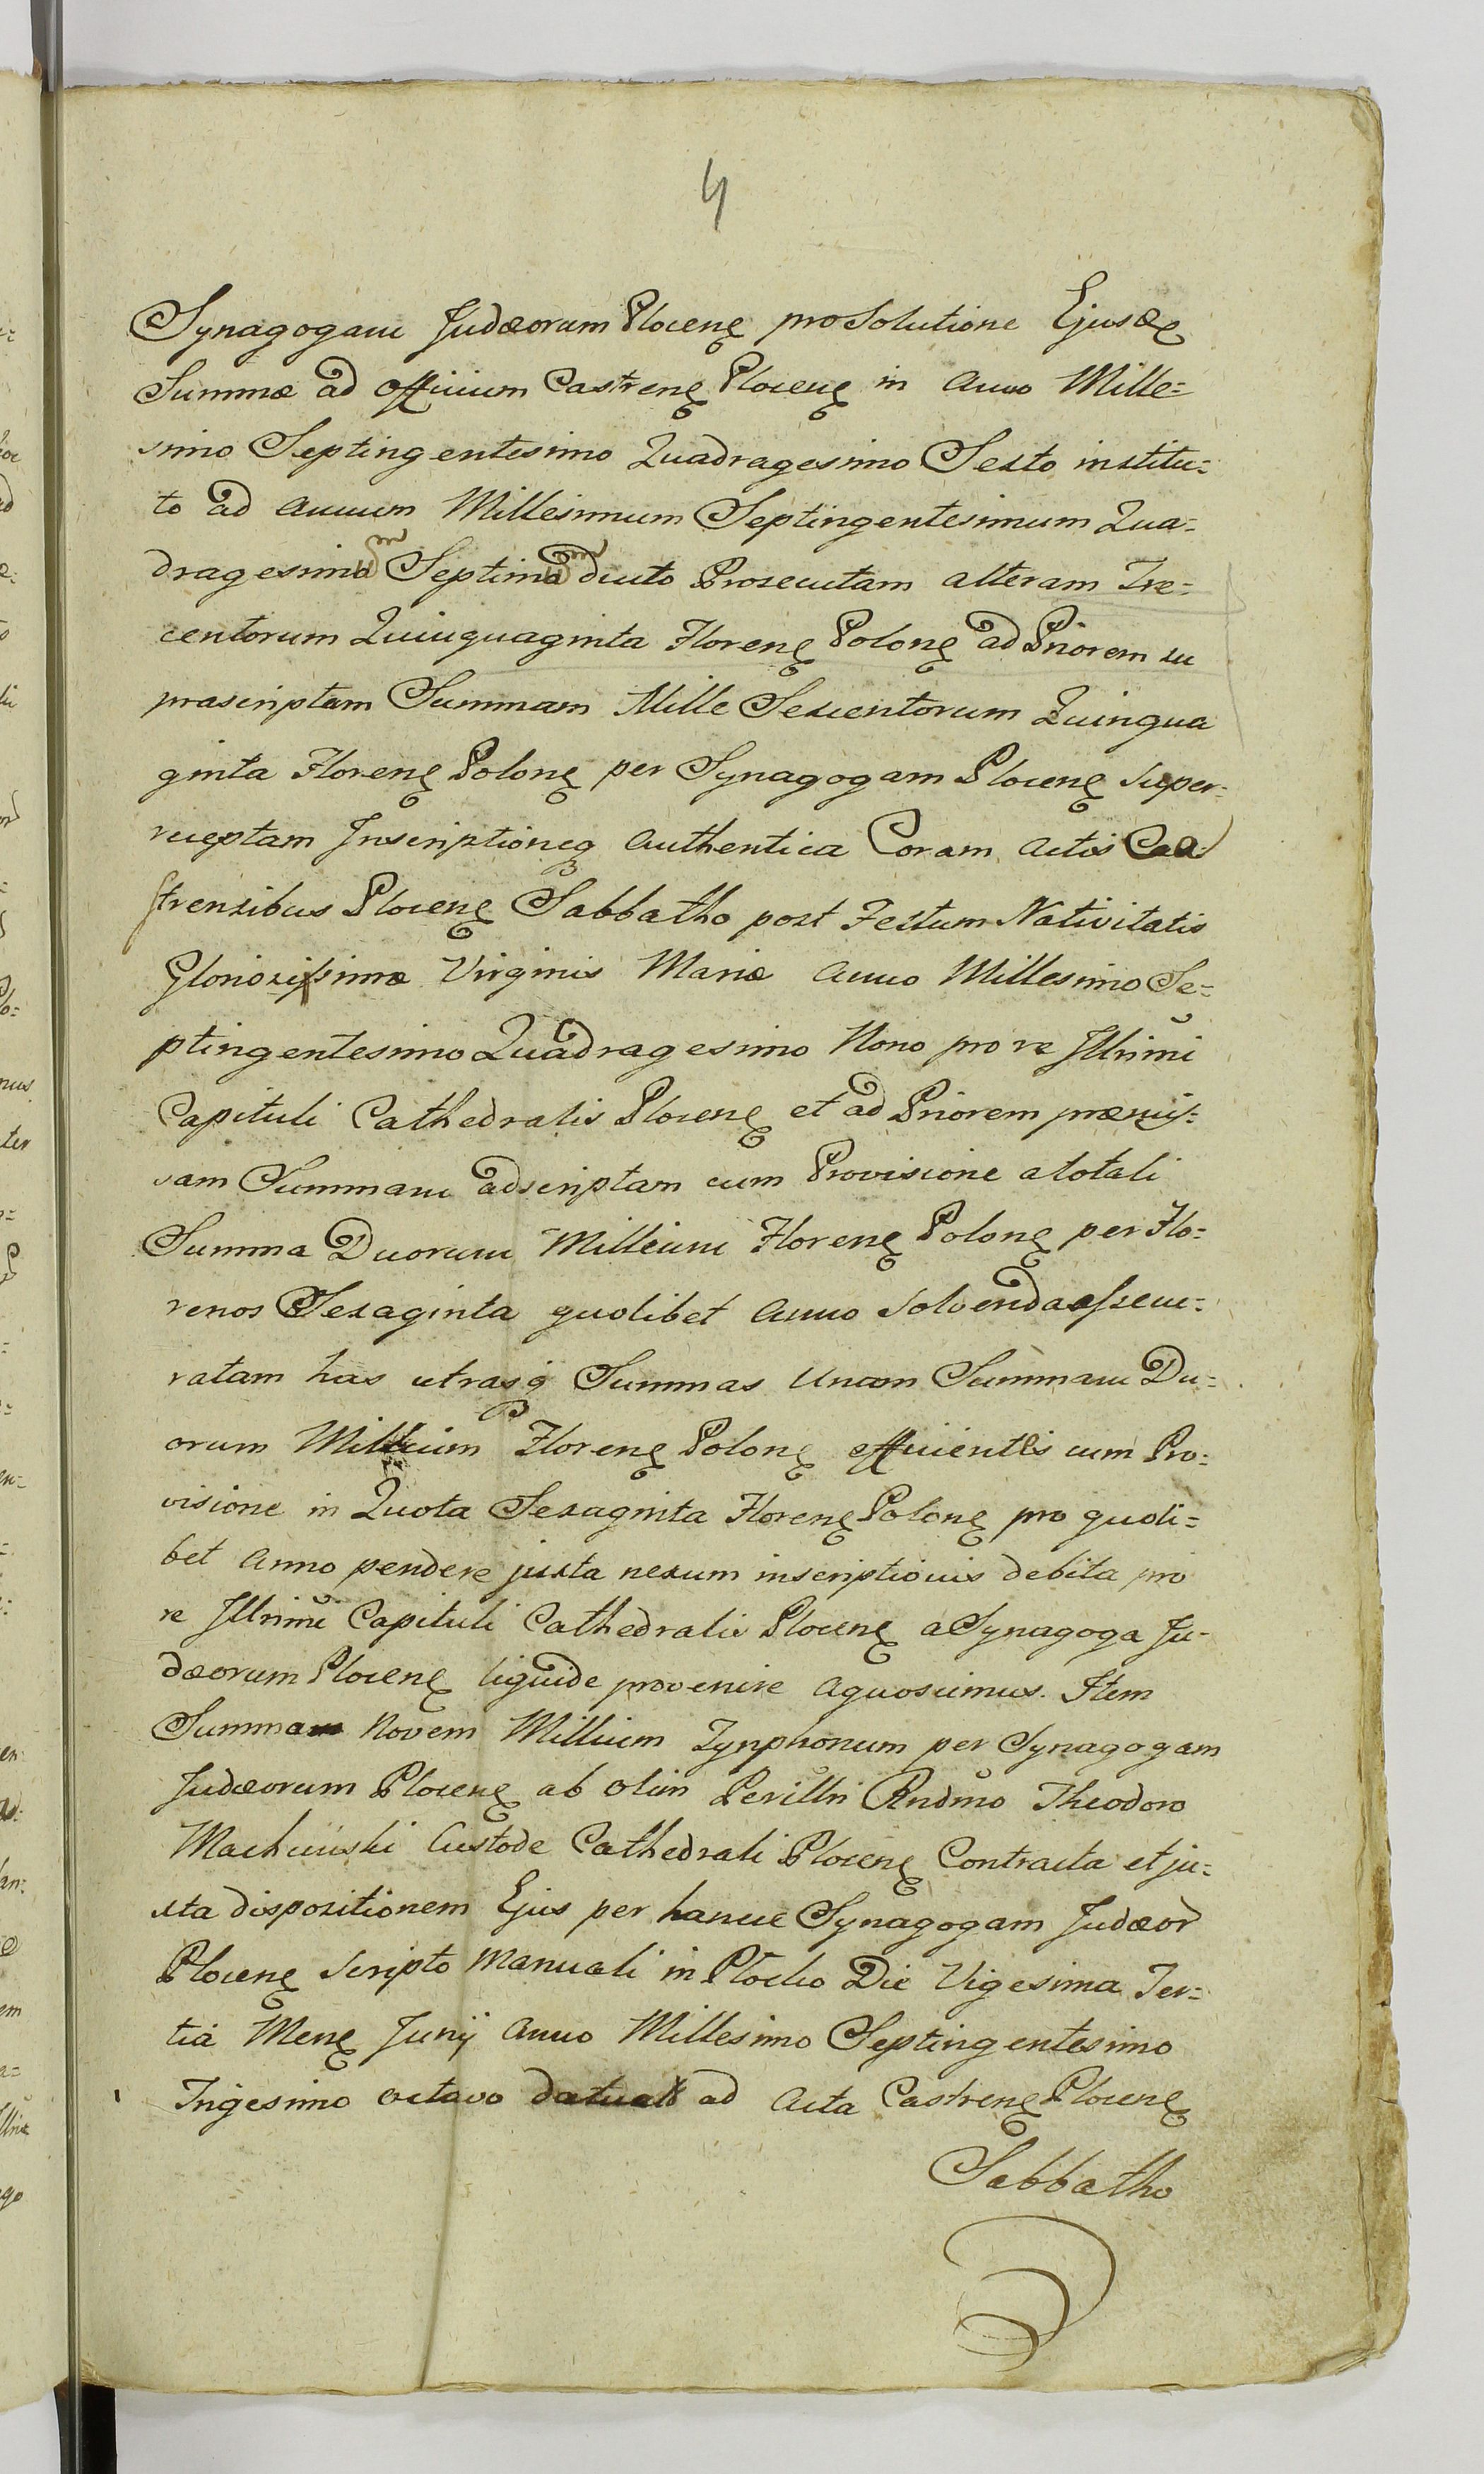 4
Synagogam Judæorum Plocenꝭ pro Solutione Ejusdꝭ
Summæ ad officium Castrenꝭ Plocenꝭ in Anno Mille=
simo Septingentesimo Quadragesimo Sexto institu=
to ad Annum Millesimum Septingentesimum Qua=
dragesimum Septimum ducto Prosecutam alteram Tre=
centorum Quinquaginta Florenꝭ Polonꝭ ad Priorem su
prascriptam Summam Mille Sexcentorum Quinqua
ginta Florenꝭ Polonꝭ per Synagogam Plocenꝭ super=
receptam Inscriptioneq Authentica Coram Actis Ca
strensibus Plocenꝭ Sabbatho post Festum Nativitatis
Gloriosissimæ Virginis Mariæ Anno Millesimo Se=
ptingentesimo Quadragesimo Nono pro re Illrimi
Capituli Cathedralis Plocenꝭ et ad Priorem præmis=
sam Summam adscriptam cum Provisione a totali
Summa Duorum Millium Florenꝭ Polonꝭ per Flo=
renos Sexaginta quolibet Anno solvenda assecu=
ratam has utrasq Summas Unam Summam Du=
orum Millium Florenꝭ Polonꝭ efficientes cum Pro=
visione in Quota Sexaginta Florenꝭ Polonꝭ pro quoli=
bet Anno pendere juxta nexum inscriptionis debita pro
re Illrimi Capituli Cathedralis Plocenꝭ a Synagoga Ju=
dæorum Plocenꝭ liquide provenire agnoscimus. Item
Summam Novem Millium Tynphonum per Synagogam
Judæorum Plocenꝭ ab olim Perillri Rndmo Theodoro
Machciński Custode Cathedrali Plocenꝭ Contracta et ju=
xta dispositionem Ejus per hance Synagogam Judæor
Plocenꝭ scripto Manuali in Plocko Die Vigesima Ter=
tia Menꝭ Junij Anno Millesimo Septingentesimo
Trigesimo octavo ad Acta Castrenꝭ Plocenꝭ
Sabbatho